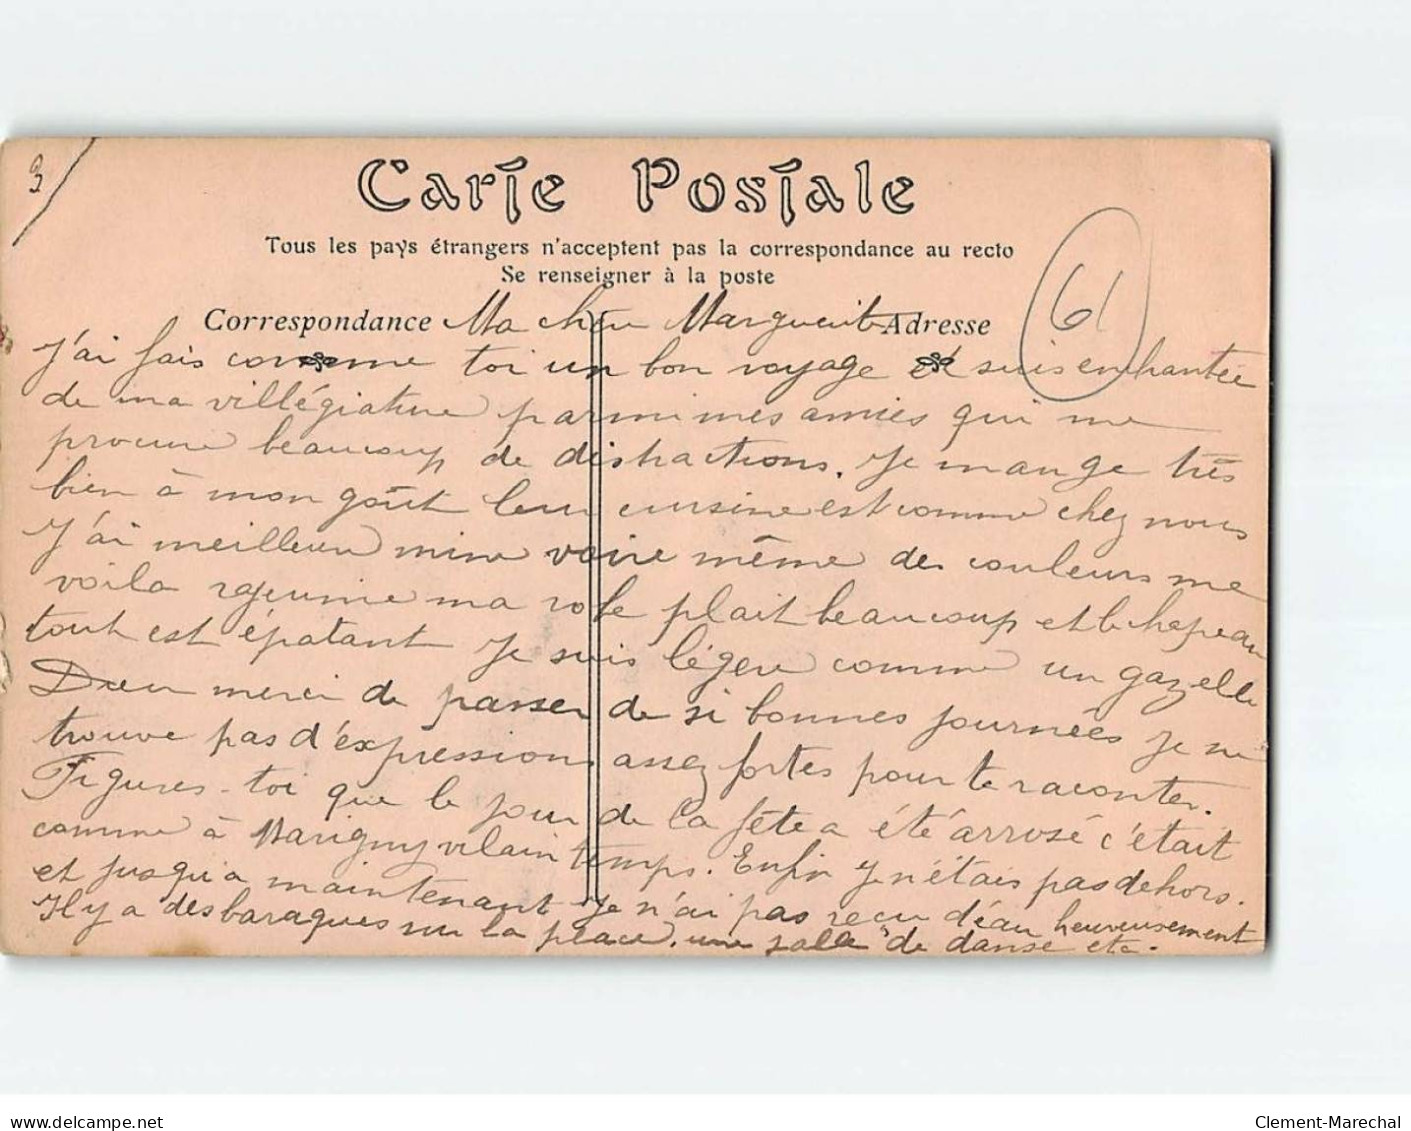 3
Carte Postale
Tous les pays étrangers n'acceptent pas la correspondance au recto
Se renseigner à la poste
61
Correspondance Ma chère Marguerite Adresse
J'ai fais comme toi un bon voyage et suis enchantée
de ma villégiature parmi mes amies qui me
procure beaucoup de distractions. Je mange très
bien à mon goût leur cuisine est comme chez nous
J'ai meilleure mine voire même des couleurs me
voila rajeunie ma robe plait beaucoup et le chapeau
tout est épatant Je suis légère comme un gazelle
Dieu merci de passer de si bonnes journées je ne
trouve pas d'expression assez fortes pour te raconter.
Figures-toi que le jour de la fête a été arrosé c'était
comme à Marigny vilain temps. Enfin je n'étais pas dehors.
et jusqu'a maintenant je n'ai pas reçu d'eau heureusement
Il y a des baraques sur la place, une salle de danse etc.
delcampe.net
Clement-Marechal